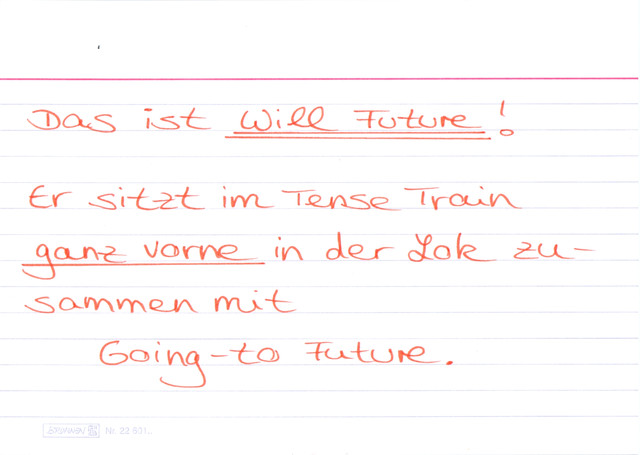 Das ist Will Future!
Er sitzt im Tense Train
ganz vorne in der Lok zu-
sammen mit
Going-to Future.
BRUNNEN Nr. 22 601..